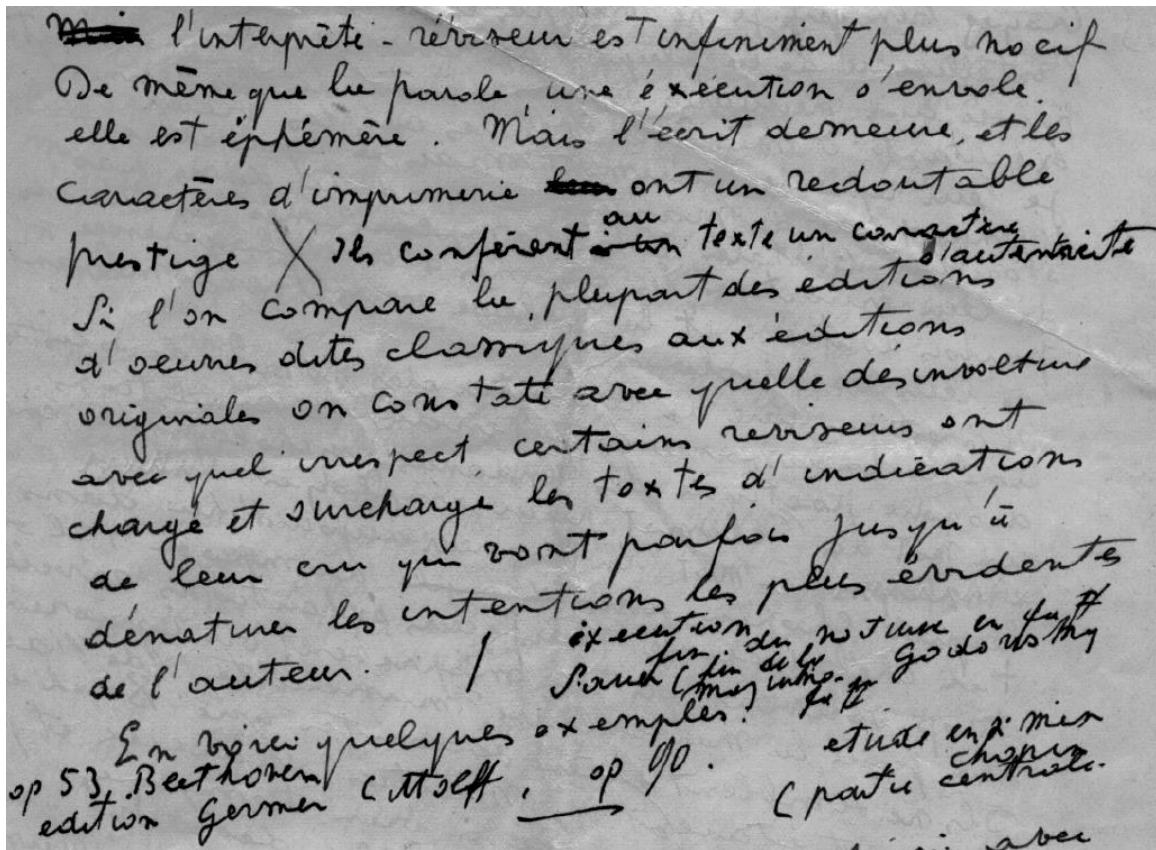 l'interprète-réviseur est infiniment plus nocif
De même que la parole, une exécution s'envole.
elle est éphémère. Mais l'écrit demeure, et les
caractères d'imprimerie ont un redoutable
prestige X Ils confèrent au texte un caractère
d'autenticité
Si l'on compare la plupart des éditions
d'oeuvres dites classiques aux éditions
originales on constate avec quelle désinvolture
avec quel irrespect certains reviseurs ont
chargé et surchargé les textes d'indications
de leur cru qui vont parfois jusqu'à
dénaturer les intentions les plus évidentes
de l'auteur. /
exécution
fin du nocturne en fa #
Sauer (fin de la
Godowsky
En voici quelques exemples:
op 53, Beethoven
edition Germer (Litolff, op 90.
etude en mi
chopin
(partie centrale.
avec